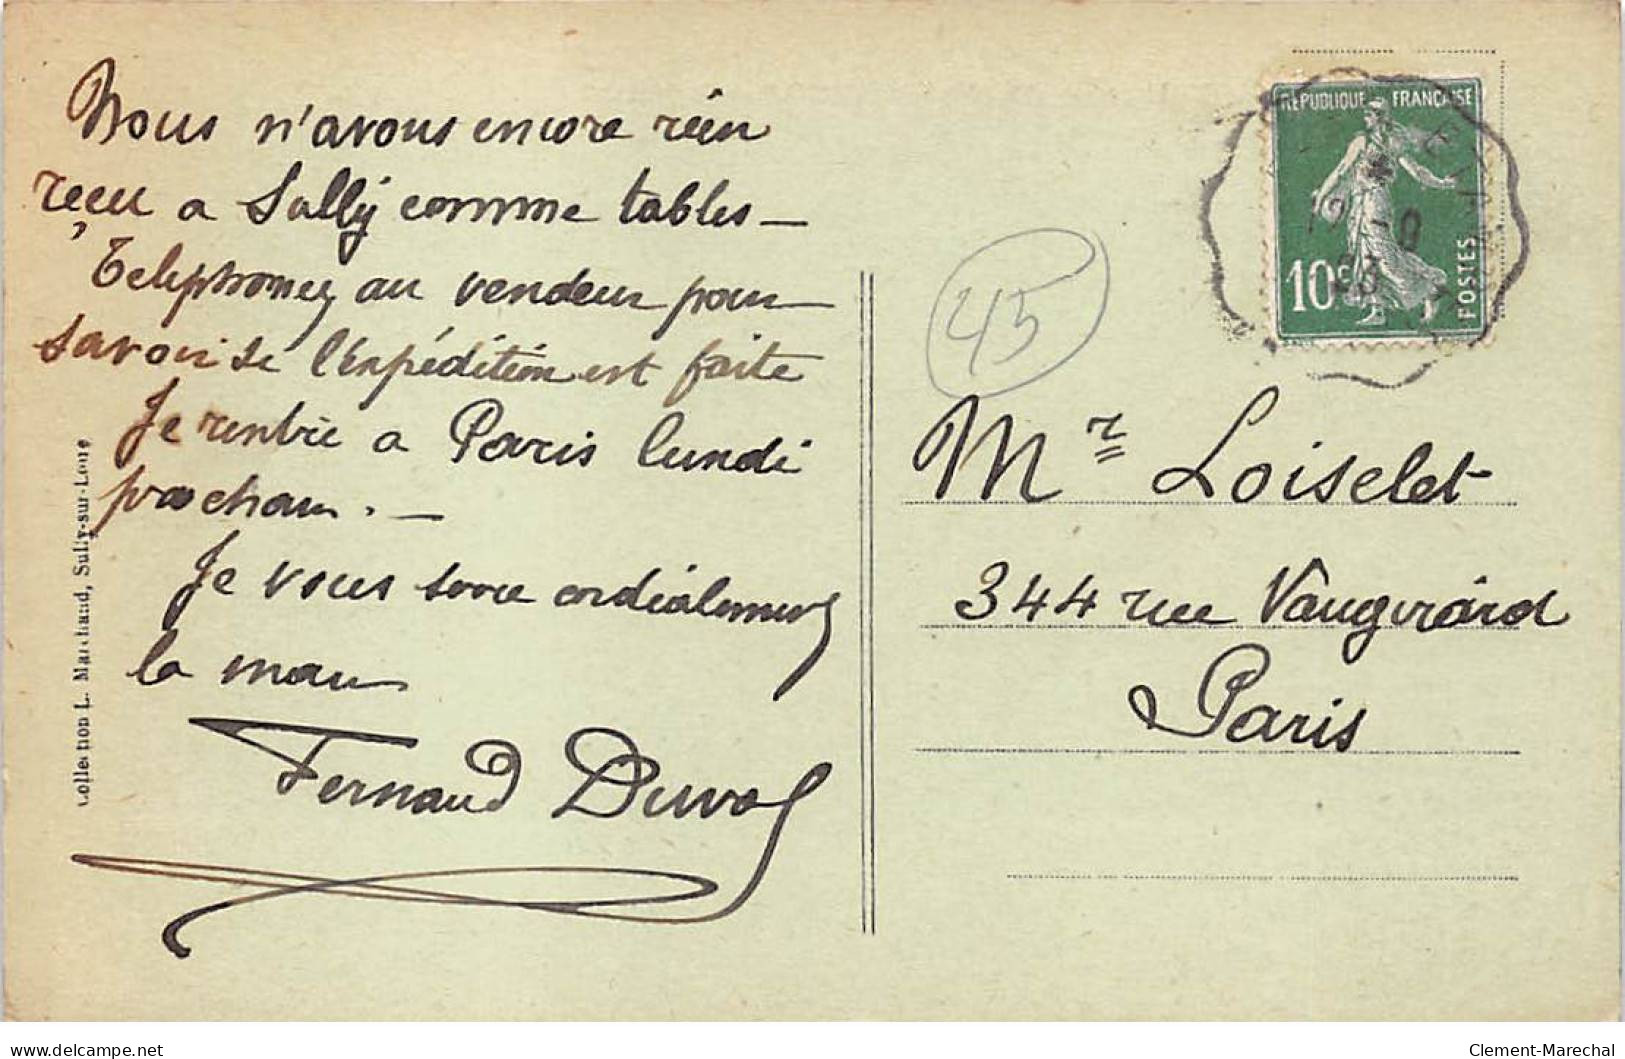 Nous n'avons encore rien
reçu a Sully comme tables —
Telephonez au vendeur pour
savoir se l'expédition est faite
Je rentre a Paris lundi
prochain. —
Je vous serre cordialement
la main
Fernand Duval
Collection L. Marchand, Sully-sur-Loire
45
REPUBLIQUE FRANÇAISE
10c
POSTES
12 - 9
23
Mr Loiselet
344 rue Vaugirard
Paris
delcampe.net
Clement-Marechal